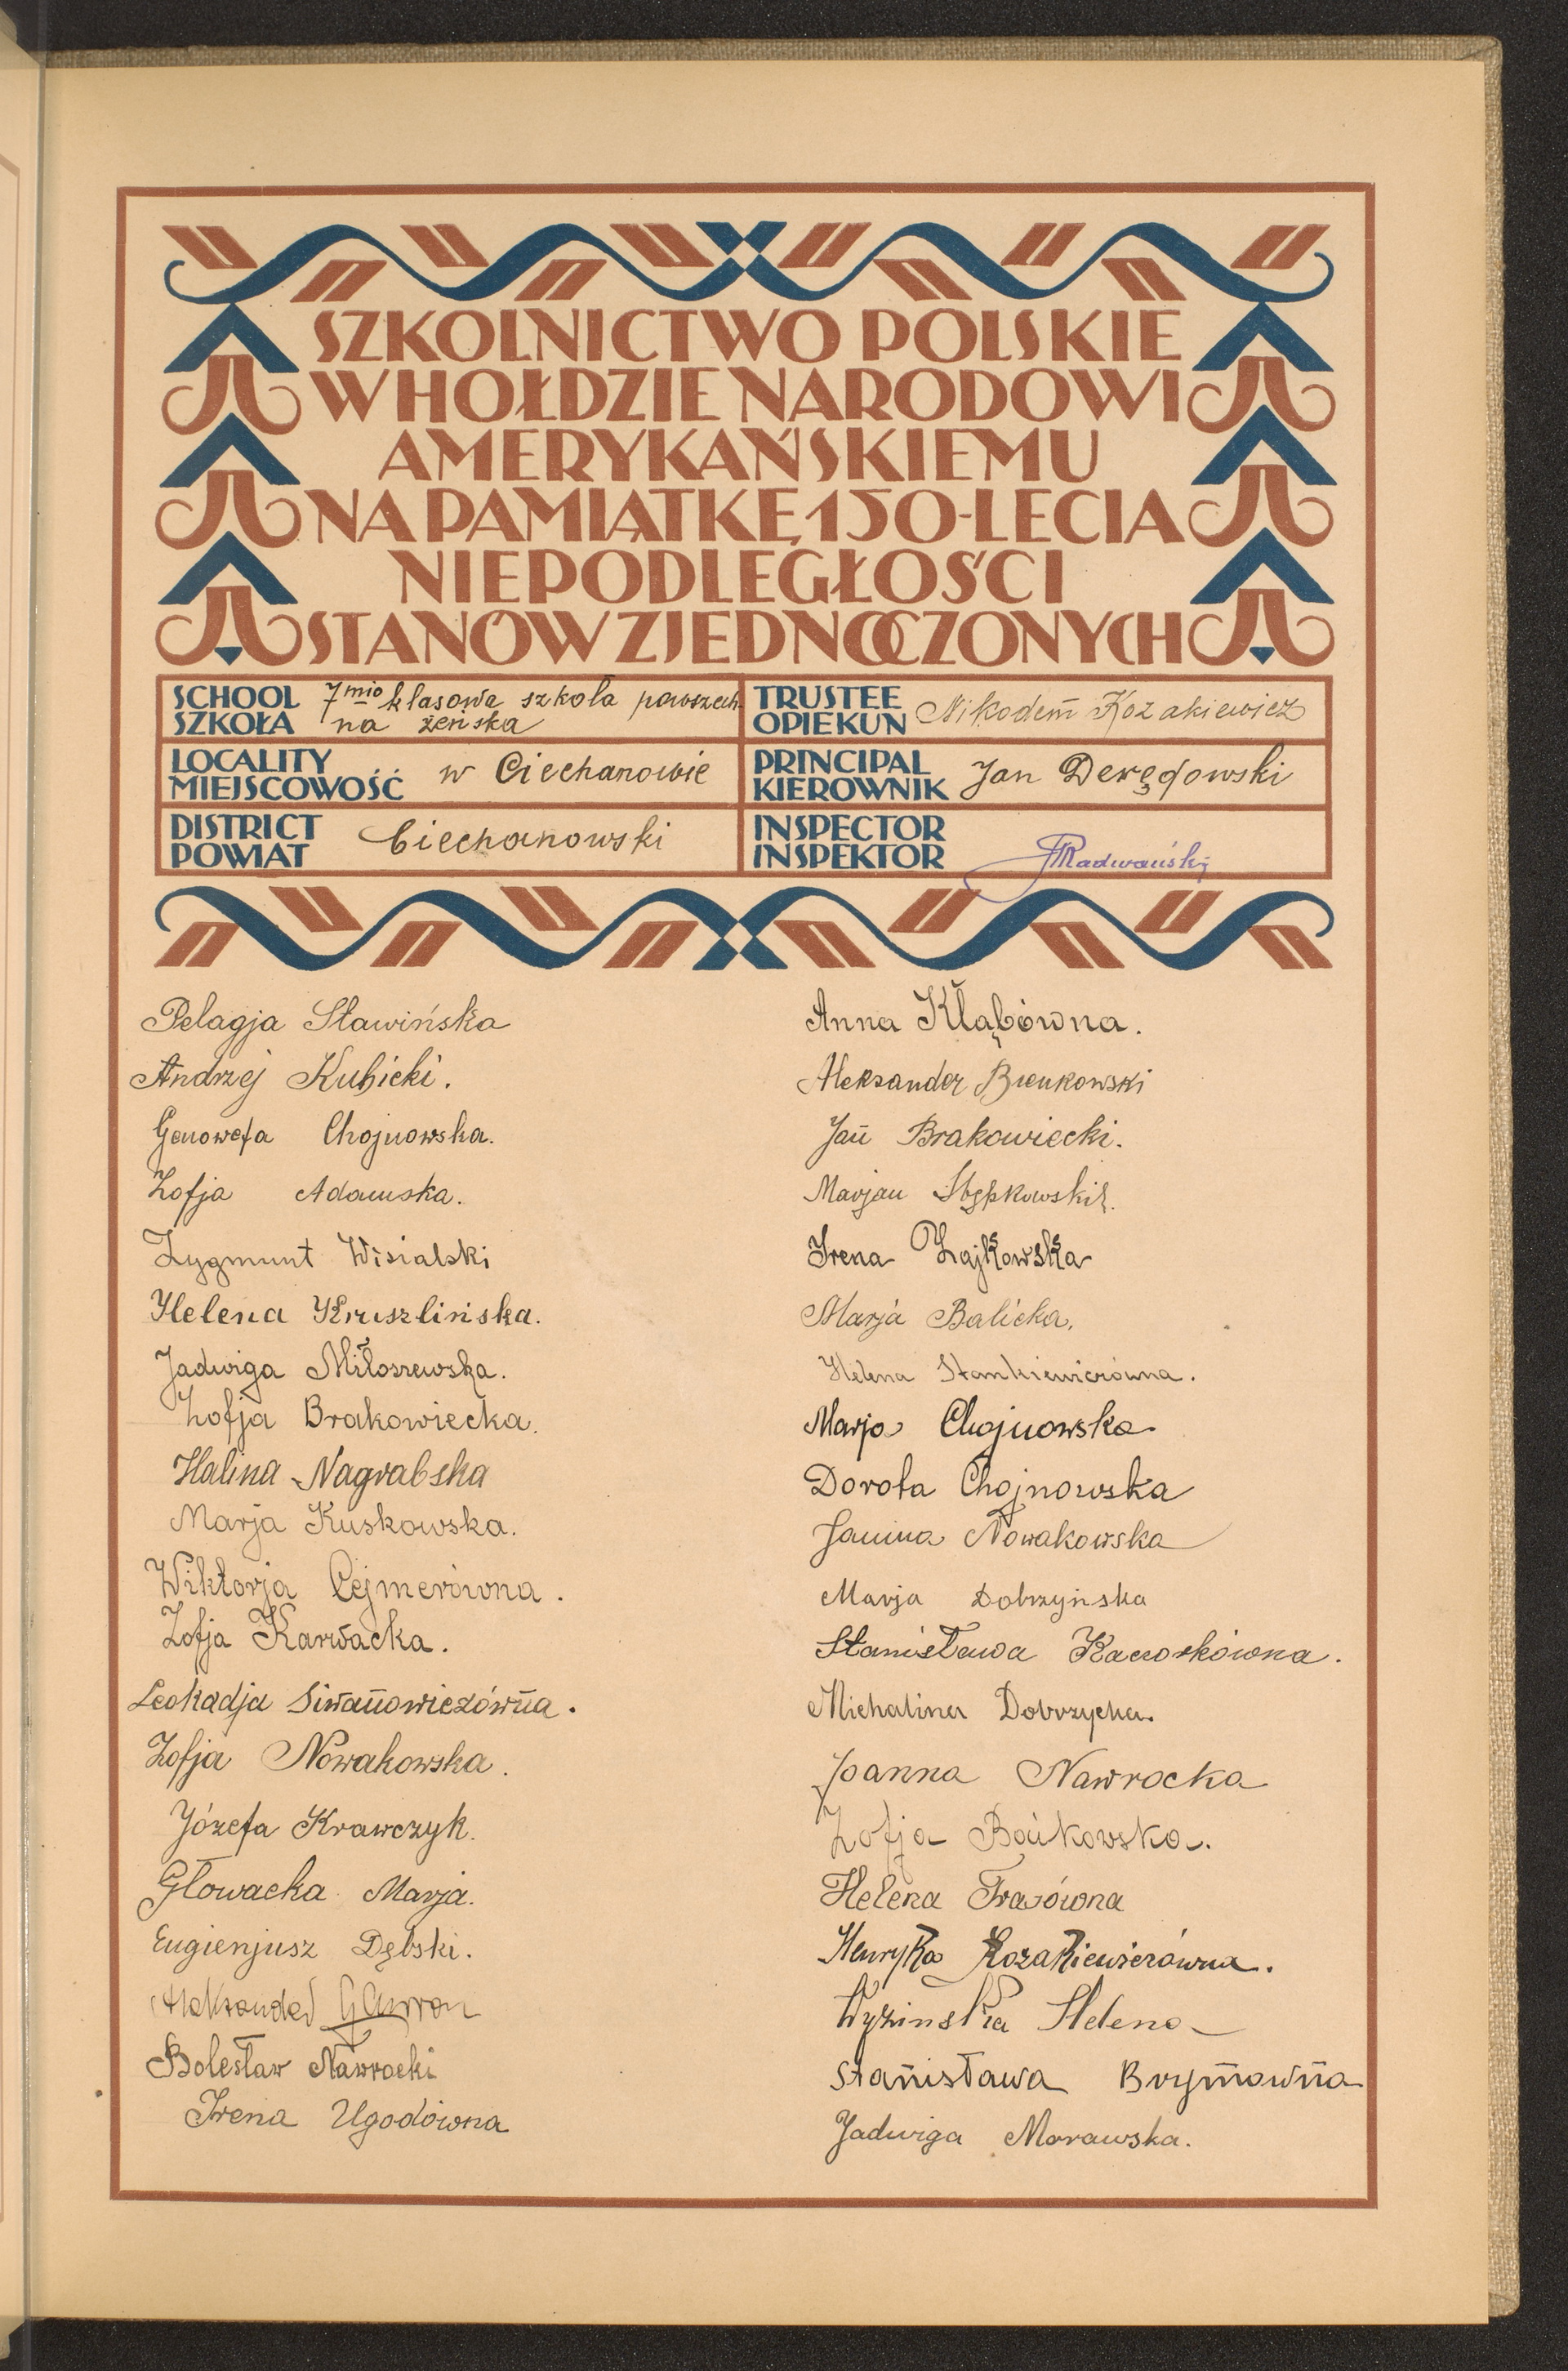 SZKOLNICTWO POLSKIE
W HOŁDZIE NARODOWI
AMERYKAŃSKIEMU
NA PAMIĄTKĘ 150-LECIA
NIEPODLEGŁOŚCI
STANÓW ZJEDNOCZONYCH
SCHOOL
SZKOŁA
7mio klasowa szkoła powszech
na żeńska
TRUSTEE
OPIEKUN
Nikodem Kozakiewicz
LOCALITY
MIEJSCOWOŚĆ
w Ciechanowie
PRINCIPAL
KIEROWNIK
Jan Deręgowski
DISTRICT
POWIAT
Ciechanowski
INSPECTOR
INSPEKTOR
Radwański
Pelagja Sławińska
Andrzej Kubicki.
Genowefa Chojnowska.
Zofja Adamska.
Zygmunt Wisialski
Helena Kruszlińska.
Jadwiga Miłoszewska.
Zofja Brakowiecka.
Halina Nagrabska
Marja Kuskowska.
Wiktorja Cejmerówna.
Zofja Karwacka.
Leokadja Siwanowiczówna.
Zofja Nowakowska.
Józefa Krawczyk.
Głowacka Marja.
Eugienjusz Dębski.
Aleksander Gawron
Bolesław Nawrocki
Irena Ugodówna
Anna Kłąbówna.
Aleksander Bieńkowski
Jan Brakowiecki.
Marjan Stępkowski
Irena Zajkowska
Marja Balicka.
Helena Stankiewiczówna.
Marja Chojnowska
Dorota Chojnowska
Janina Nowakowska
Marja Dobrzyńska
Stanisława Kaczorkówna.
Michalina Dobrzycka.
Joanna Nawrocka
Zofja Bońkowska.
Helena Trasówna
Henryka Kozakiewiczówna.
Wyzińska Helena
Stanisława Brymowna
Jadwiga Morawska.